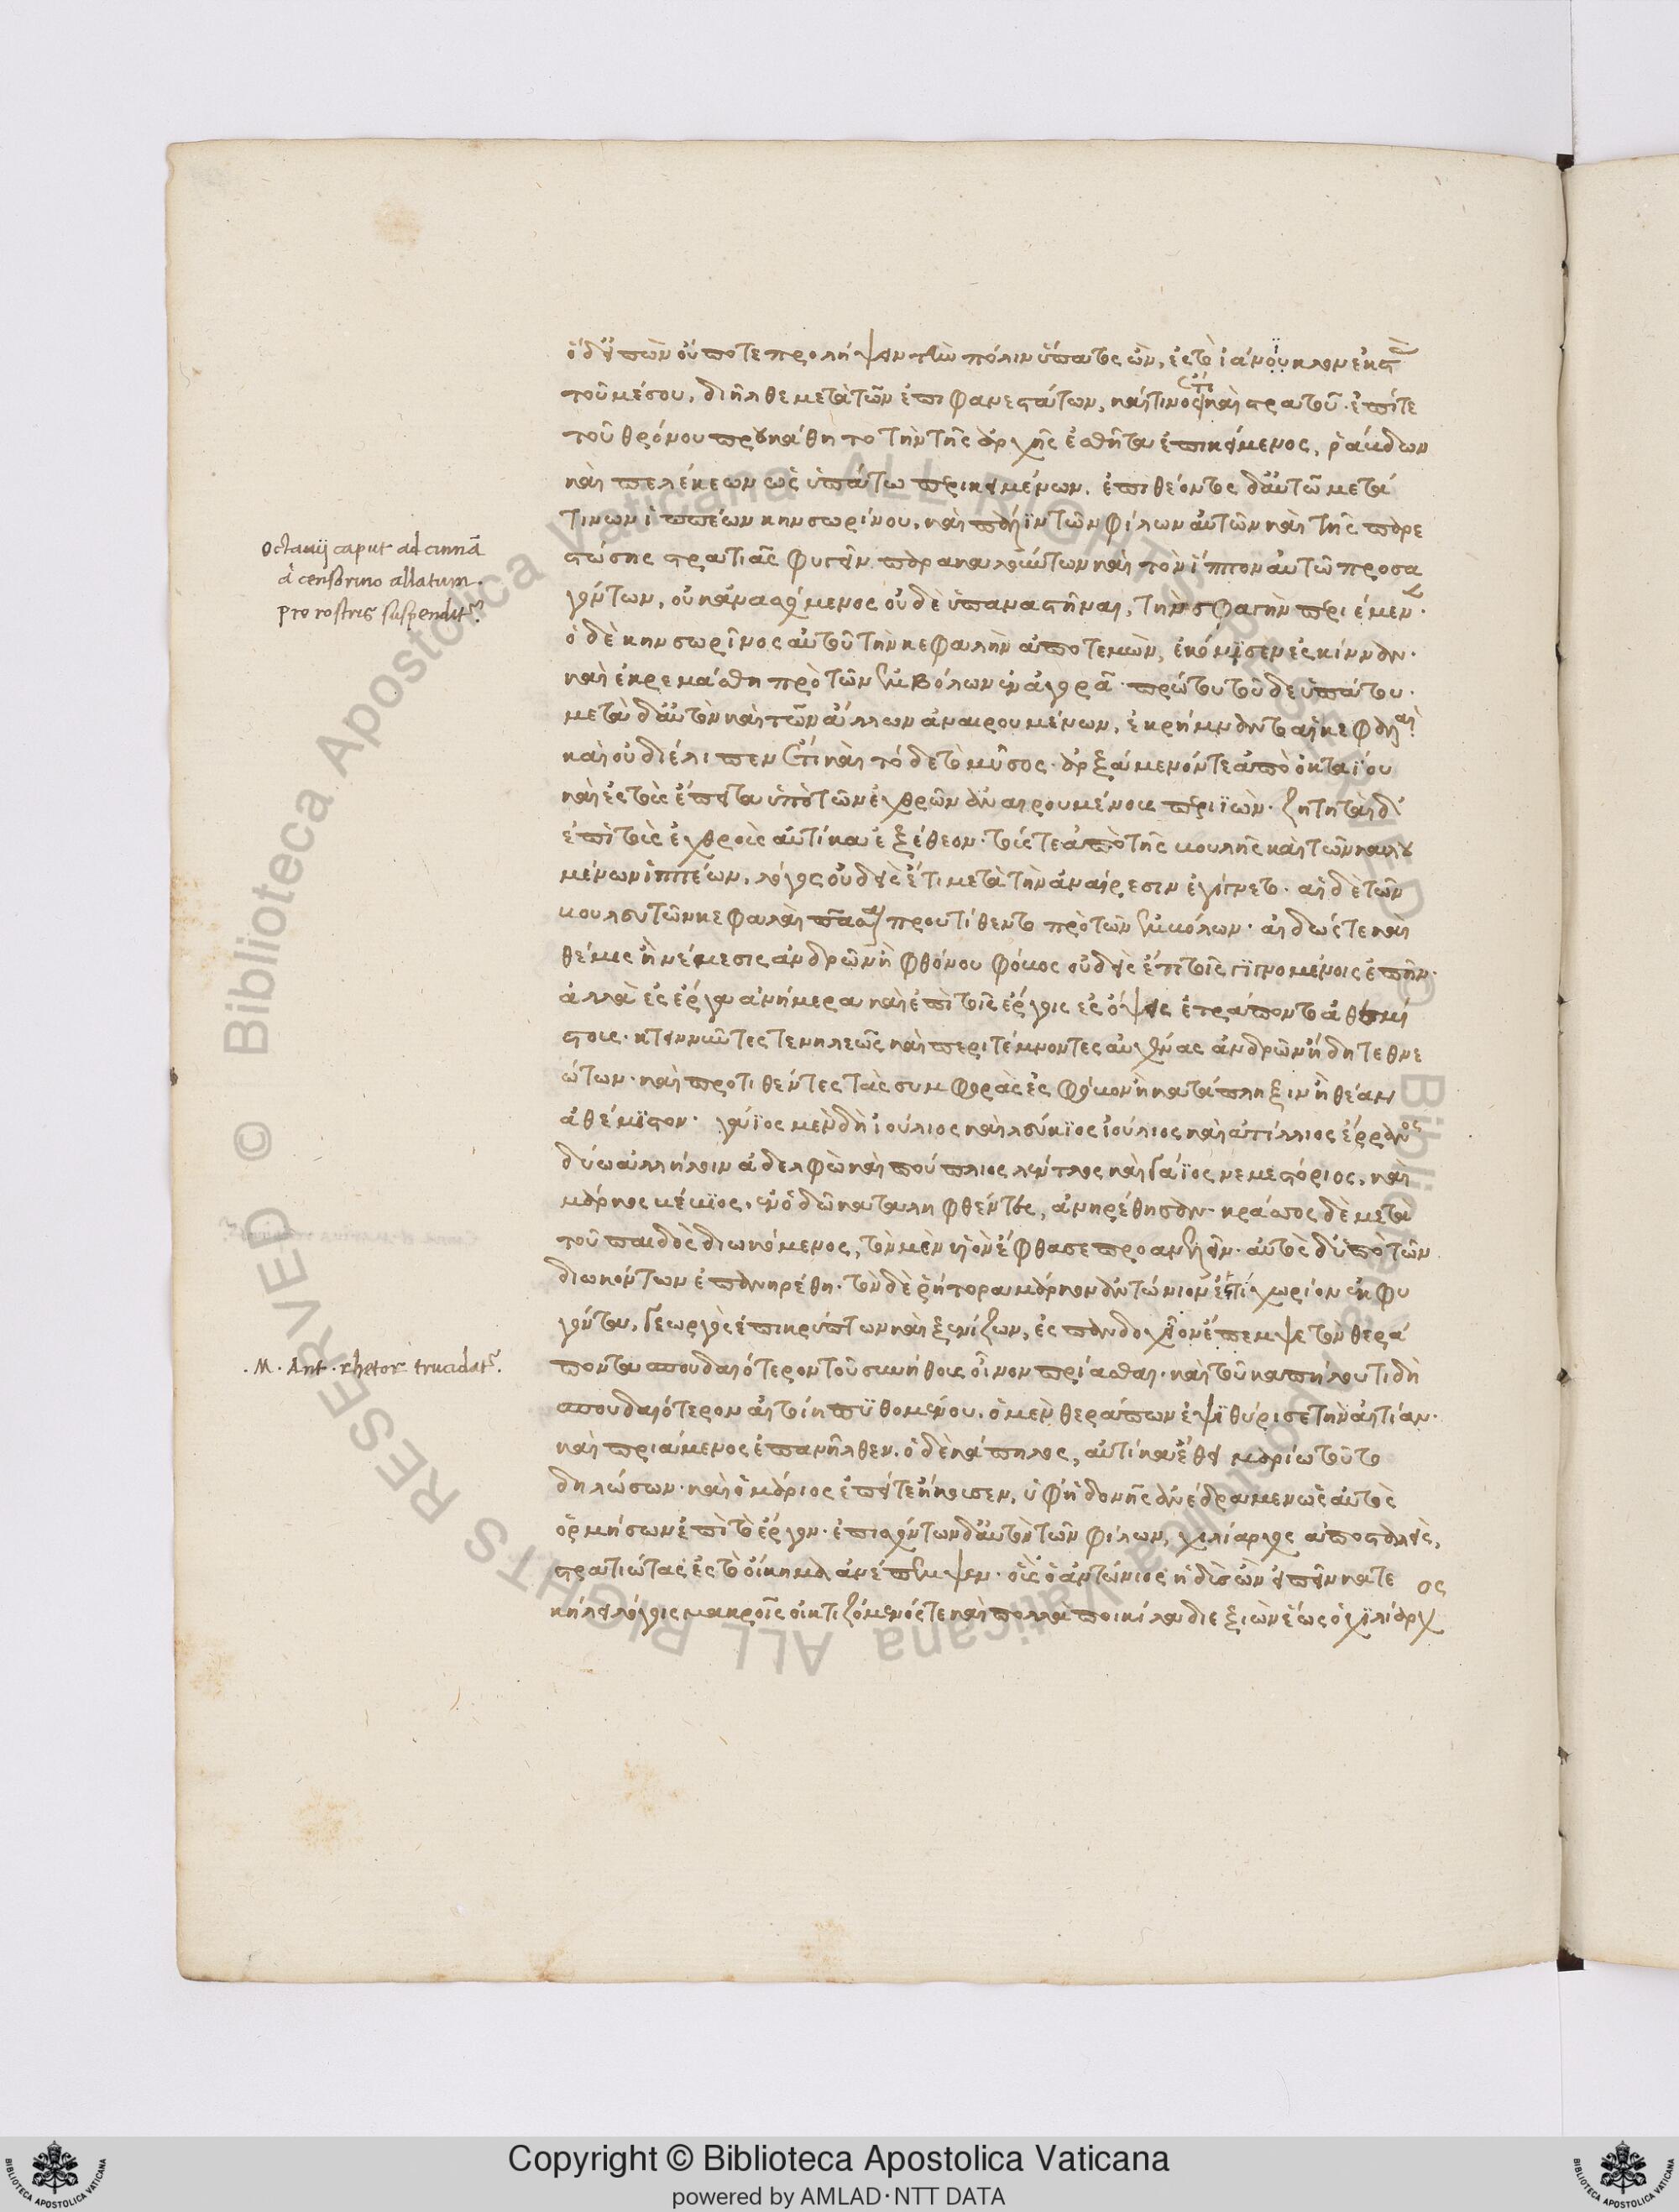 ὁ δ' εἰπὼν οὔποτε προλήψειν τὴν πόλιν ὕπατος ὤν, ἐς τὸ ἰάνουκλον ἐκστὰς
τοῦ μέσου, διῆλθε μετὰ τῶν ἐπιφανεστάτων, καί τινος ἔτι καὶ στρατοῦ. ἐπί τε
τοῦ θρόνου προυκάθητο τὴν τῆς ἀρχῆς ἐσθῆτα ἐπικείμενος, ῥάβδων
καὶ πελέκεων ὡς ὑπάτω περικειμένων. ἐπιθέοντος δ' αὐτῶ μετά
τινων ἱππέων κηνσωρίνου, καὶ πάλιν τῶν φίλων αὐτὸν καὶ τῆς παρε
στώσης στρατιᾶς φυγεῖν παρακαλούντων καὶ τὸν ἵππον αὐτῶ προσα
γόντων, οὐκ ἀνασχόμενος οὐδὲ ὑπαναστῆναι, τὴν σφαγὴν περιέμεν.
ὁ δὲ κηνσωρῖνος αὐτοῦ τὴν κεφαλὴν ἀποτεμὼν, ἐκόμισεν ἐς κίνναν.
καὶ ἐκρεμάσθη πρὸ τῶν ἐμβόλων ἐν ἀγορᾶ πρώτου τοῦδε ὑπάτου.
μετὰ δ' αὐτὸν καὶ τῶν ἄλλων ἀναιρουμένων, ἐκρήμναντο αἱ κεφαλαί.
καὶ οὐ διέλιπεν ἔτι καὶ τόδε τὸ μῦσος. ἀρξάμενόν τε ἀπὸ ὀκταΐου
καὶ ἐς τοὺς ἔπειτα ὑπὸ τῶν ἐχθρῶν ἀναιρουμένους περιϊών. ζητηταὶ δ'
ἐπὶ τοὺς ἐχθροὺς αὐτίκα ἐξέθεον. τούς τε ἀπὸ τῆς βουλῆς καὶ τῶν καλου
μένων ἱππέων. λόγος οὐδεὶς ἔτι μετὰ τὴν ἀναίρεσιν ἐγίγνετο. αἱ δὲ τῶν
βουλευτῶν κεφαλαὶ πᾶσαι προυτίθεντο πρὸ τῶν ἐμβόλων. αἰδώς τε καὶ
θέμις ἢ νέμεσις ἀνδρῶν ἢ φθόνου φόβος οὐδεὶς ἔτι τοῖς γιγνομένοις ἐπῆν.
ἀλλὰ ἐς ἔργα ἀνήμερα καὶ ἐπὶ τοῖς ἔργοις ἐς ὄψεις ἐτράποντο ἀθεμί
στους. κτιννῦντές τε νηλεῶς καὶ περιτέμνοντες αὐχένας ἀνδρῶν ἤδη τεθνε
ώτων. καὶ προτιθέντες τὰς συμφορὰς ἐς φόβον ἢ κατάπληξιν ἢ θέαν
ἀθέμιστον. γάϊος μὲν δὴ ἰούλιος καὶ λεύκϊος ἰούλιος καὶ ἀτίλλιος ἔρρανος
δύω ἀλλήλοιν ἀδελφὼ καὶ πούπλιος λέντλος καὶ γάϊος νεμεστόριος, καὶ
μάρκος βέβιος, ἐν ὁδῶ καταληφθέντες, ἀνηρέθησαν. κράσσος δὲ μετὰ
τοῦ παιδὸς διωκόμενος, τὸν μὲν υἱὸν ἔφθασε προανελεῖν. αὐτὸς δ' ὑπὸ τῶν
διωκόντων ἐπανηρέθη. τὸν δὲ ῥήτορα μάρκον ἀντώνιον ἔς τι χωρίον ἐκφυ
γόντα, γεωργὸς ἐπικρύπτων καὶ ξενίζων, ἐς πανδοχεῖον ἔπεμψε τὸν θερά
ποντα σπουδαιότερον τοῦ συνήθους οἶνον πρίασθαι. καὶ τοῦ καπήλου τι δὴ
σπουδαιότερον αἰτοίη πϋθομένου. ὁ μὲν θεράπων ἐψιθύρισε τὴν αἰτίαν.
καὶ πριάμενος ἐπανῆλθεν. ὁ δὲ κάπηλος, αὐτίκα ἔθει μαρίω τοῦτο
δηλώσων. καὶ ὁ μάριος ἐπεί τε ἤκουσεν, ὑφ' ἡδονῆς ἀνέδραμεν ὡς αὐτὸς
ὁρμήσων ἐπὶ τὸ ἔργον. ἐπισχόντων δ' αὐτὸν τῶν φίλων, χιλίαρχος ἀποσταλεὶς,
στρατιώτας ἐς τὸ οἴκημα ἀνέπεμψεν. οὓς ὁ ἀντώνιος ἡδὺς ὢν εἰπεῖν κατε
κήλει λόγοις μακροῖς οἰκτιζόμενός τε καὶ πολλὰ ποικίλα διεξιὼν ἕως ὁ χιλίαρχος
Octavij caput ad cinnā
à censorino allatum.
pro rostris suspendit͛.
.M. Ant. rhetor trucidat͛.
Copyright © Biblioteca Apostolica Vaticana
powered by AMLAD·NTT DATA
© Biblioteca Apostolica Vaticana ALL RIGHTS RESERVED